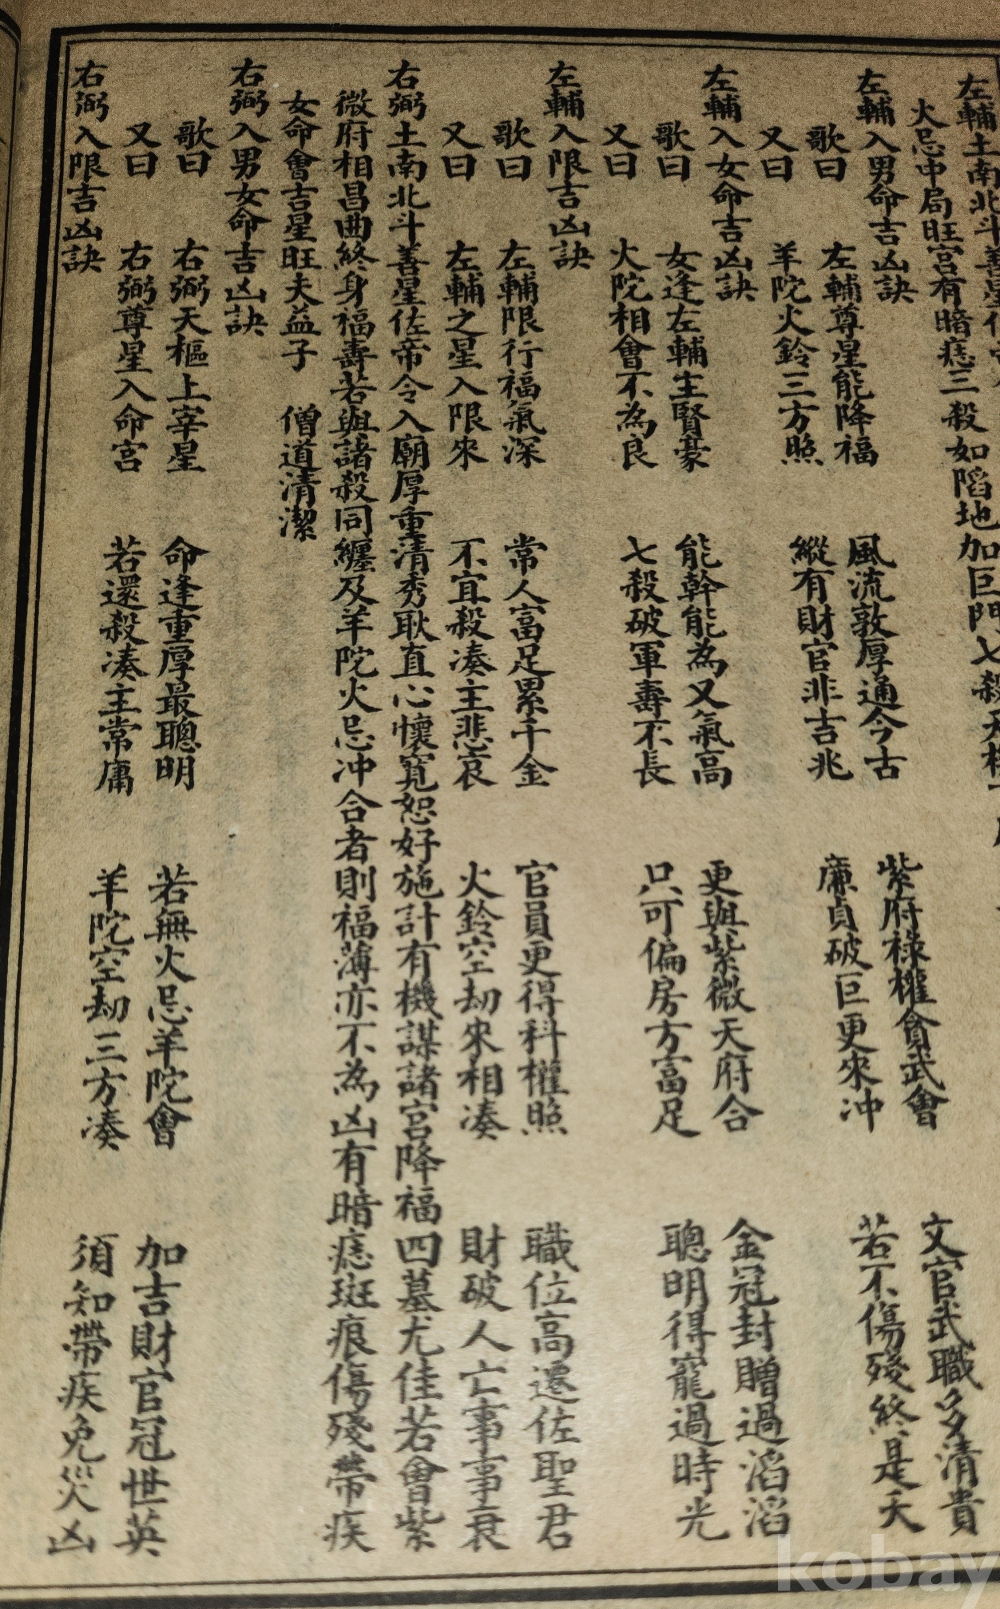 左輔土南北斗善星佐
火忌中局旺宮有暗痣三殺如陷地加巨門七殺天
左輔入男命吉凶訣
歌曰 左輔尊星能降福 風流敦厚通今古 紫府祿權貪武會 文官武職多清貴
又曰 羊陀火鈴三方照 縱有財官非吉兆 廉貞破巨更來冲 若不傷殘終是夭
左輔入女命吉凶訣
歌曰 女逢左輔主賢豪 能幹能為又氣高 更與紫微天府合 金冠封贈過滔滔
又曰 火陀相會不為良 七殺破軍壽不長 只可偏房方富足 聰明得寵過時光
左輔入限吉凶訣
歌曰 左輔限行福氣深 常人富足累千金 官員更得科權照 職位高遷佐聖君
又曰 左輔之星入限來 不宜殺湊主悲哀 火鈴空劫來相湊 財破人亡事事衰
右弼土南北斗善星佐帝令入廟厚重清秀耿直心懷寬恕好施計有機謀諸宮降福四墓尤佳若會紫
微府相昌曲終身福壽若與諸殺同纏及羊陀火忌冲合者則福薄亦不為凶有暗痣斑痕傷殘帶疾
女命會吉星旺夫益子 僧道清潔
右弼入男女命吉凶訣
歌曰 右弼天樞上宰星 命逢重厚最聰明 若無火忌羊陀會 加吉財官冠世英
又曰 右弼尊星入命宮 若還殺湊主常庸 羊陀空劫三方湊 須知帶疾免災凶
右弼入限吉凶訣
kobay